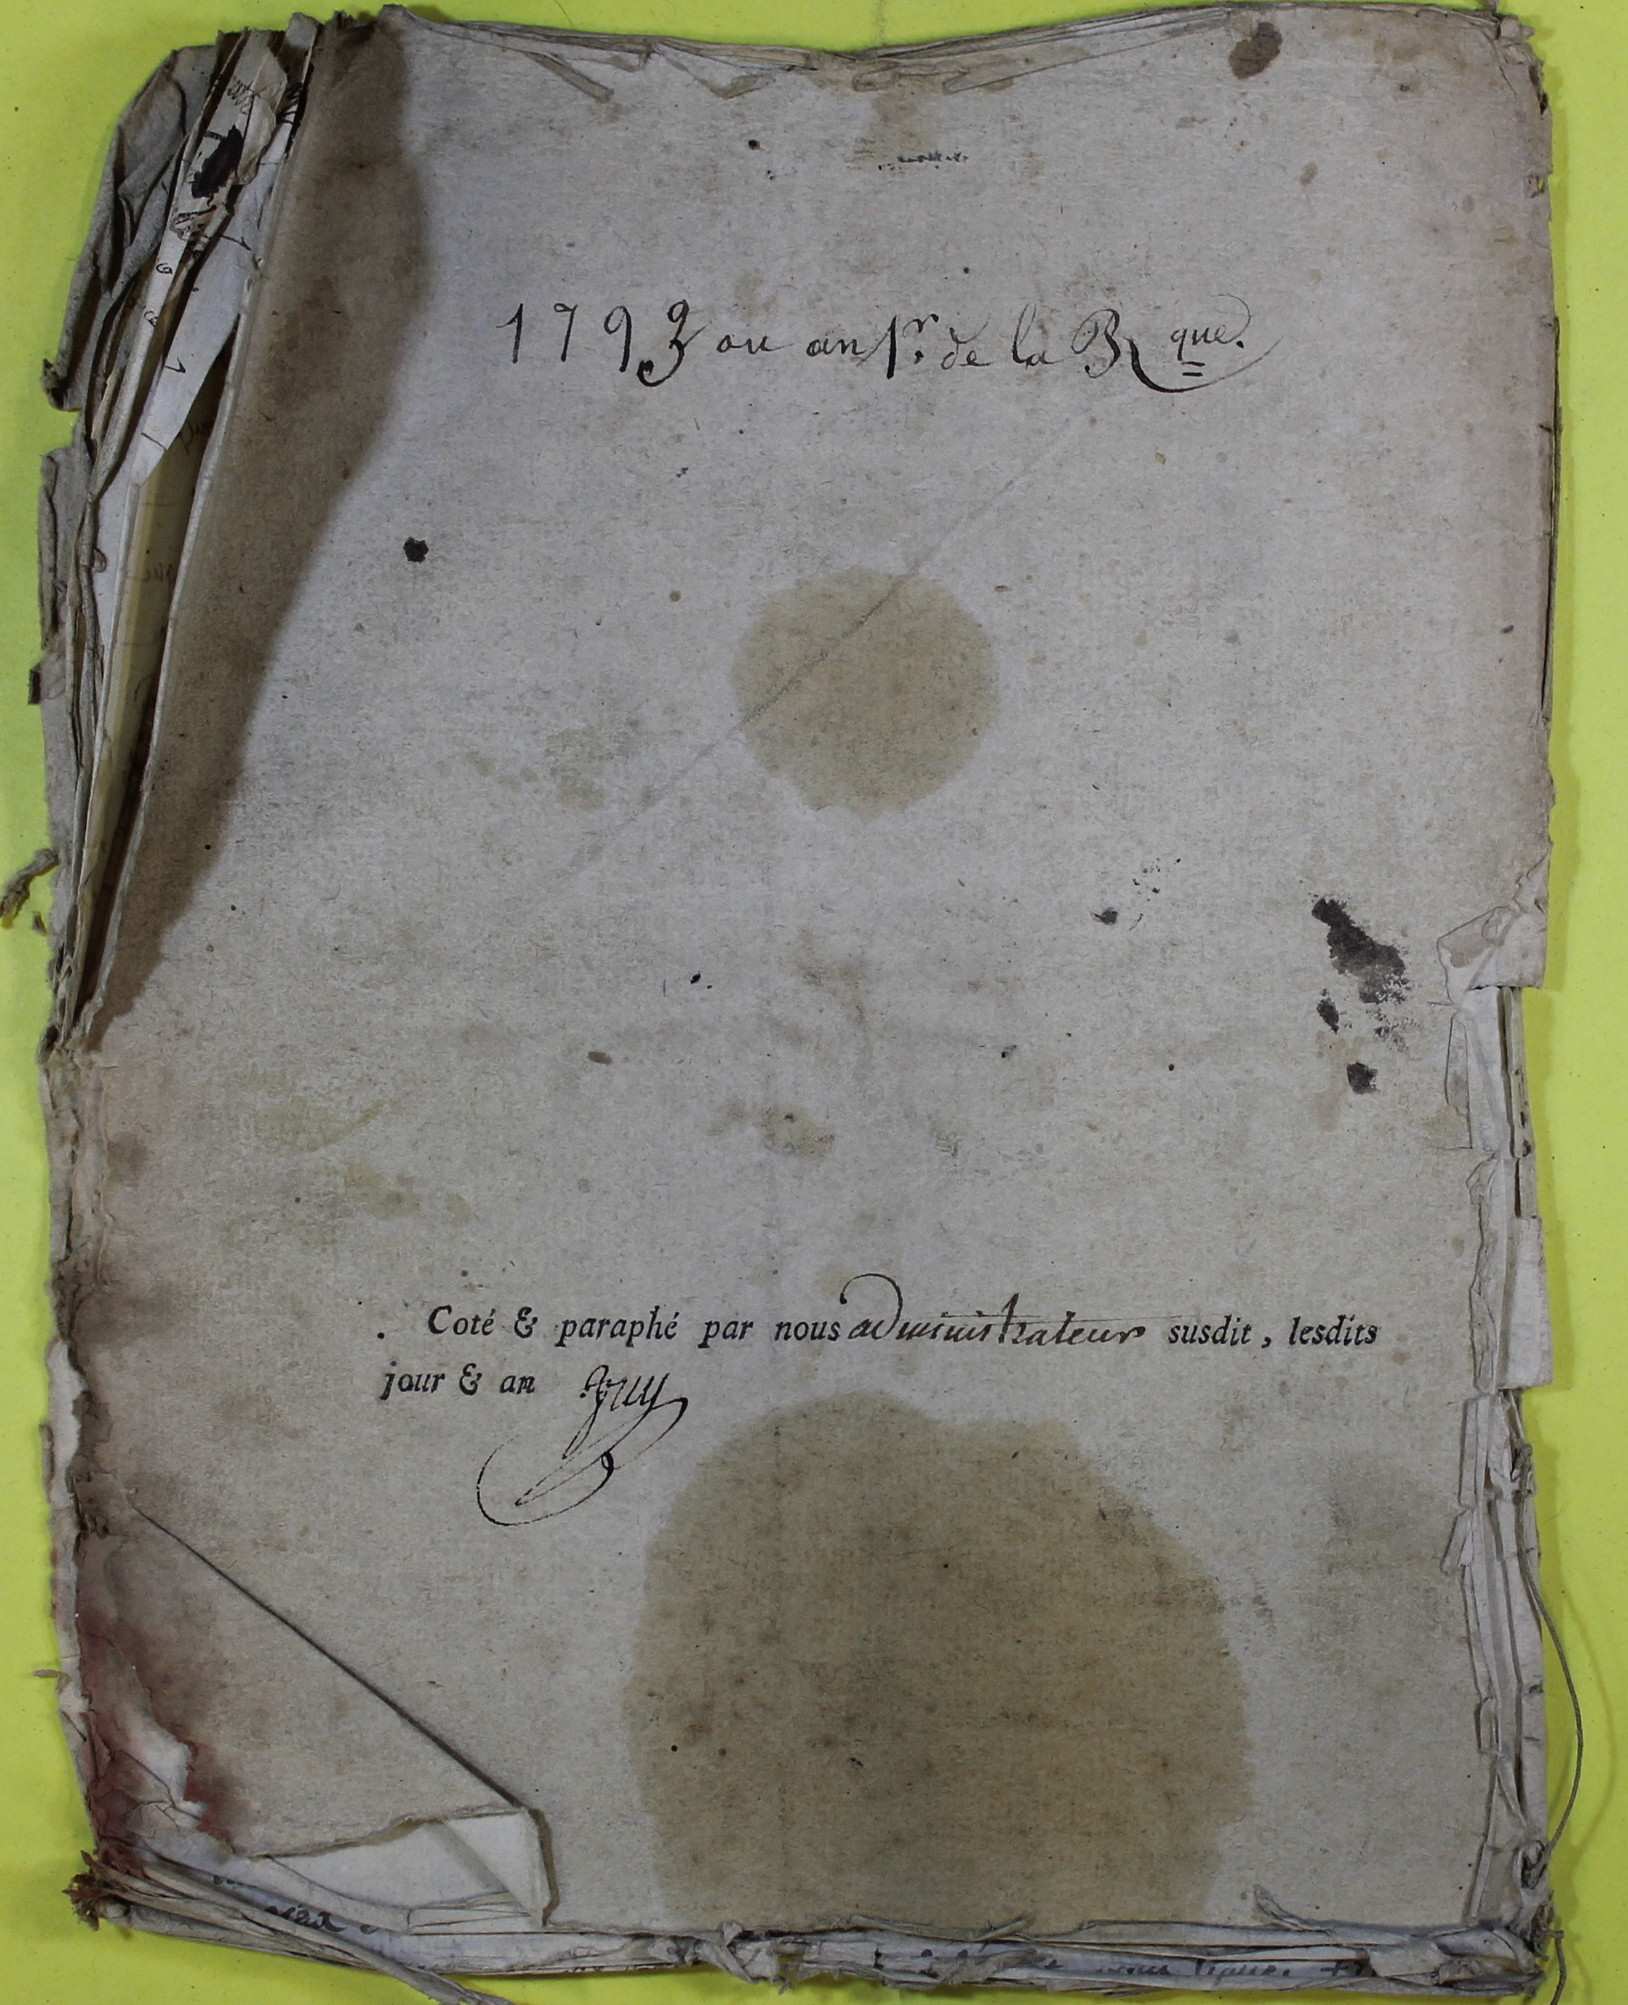 1793 ou an 1r. de la Rque.
Coté & paraphé par nous administrateur susdit, lesdits
jour & an